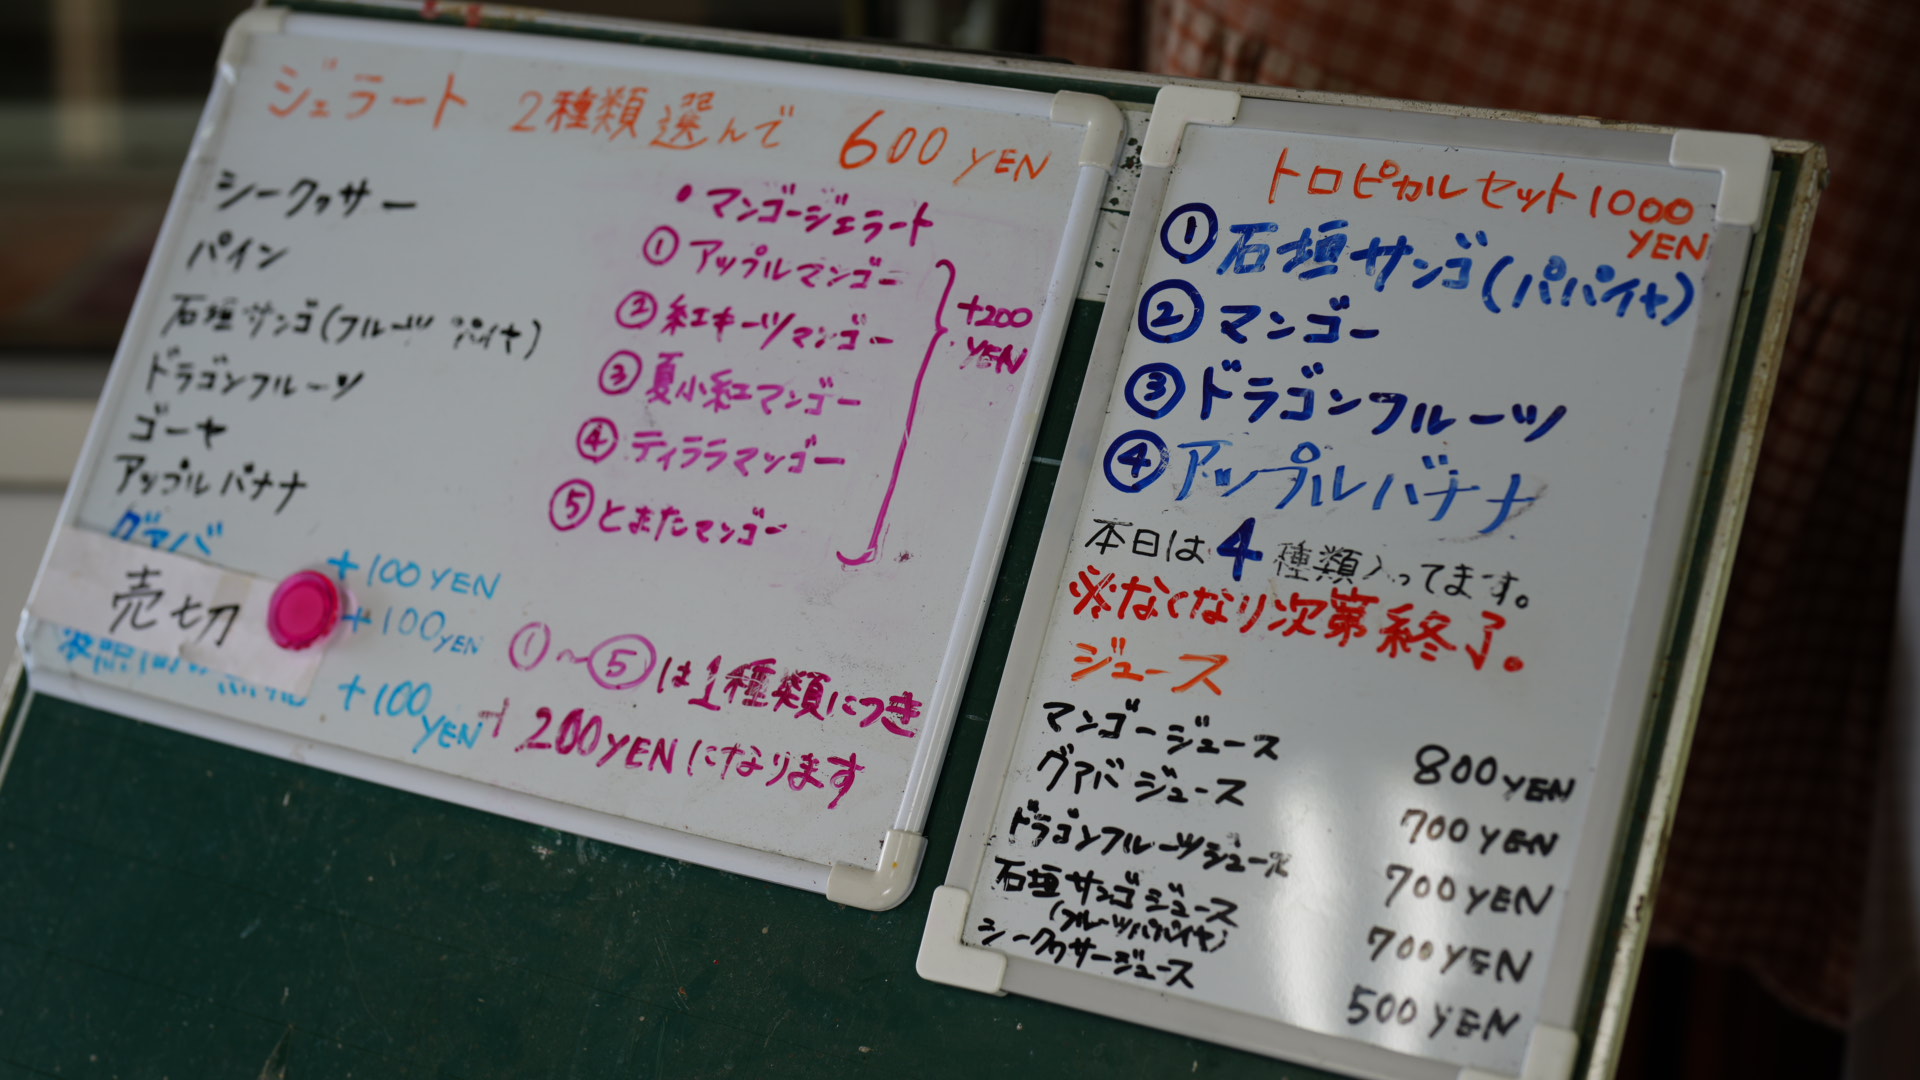 ジェラート 2種類選んで 600 YEN
シークヮサー
パイン
石垣サンゴ(フルーツ パパイヤ)
ドラゴンフルーツ
ゴーヤ
アップルバナナ
グァバ +100 YEN
売切 +100 YEN
+100 YEN
・マンゴージェラート
① アップルマンゴー
② 紅キーツマンゴー
③ 夏小紅マンゴー
④ ティララマンゴー
⑤ とまたマンゴー
+200
YEN
①~⑤は1種類につき
+200YENになります
トロピカルセット1000
YEN
① 石垣サンゴ(パパイヤ)
② マンゴー
③ ドラゴンフルーツ
④ アップルバナナ
本日は4種類入ってます。
※なくなり次第終了。
ジュース
マンゴージュース 800YEN
グァバジュース 700YEN
ドラゴンフルーツジュース 700YEN
石垣サンゴジュース 700YEN
(フルーツパパイヤ)
シークヮサージュース 500YEN